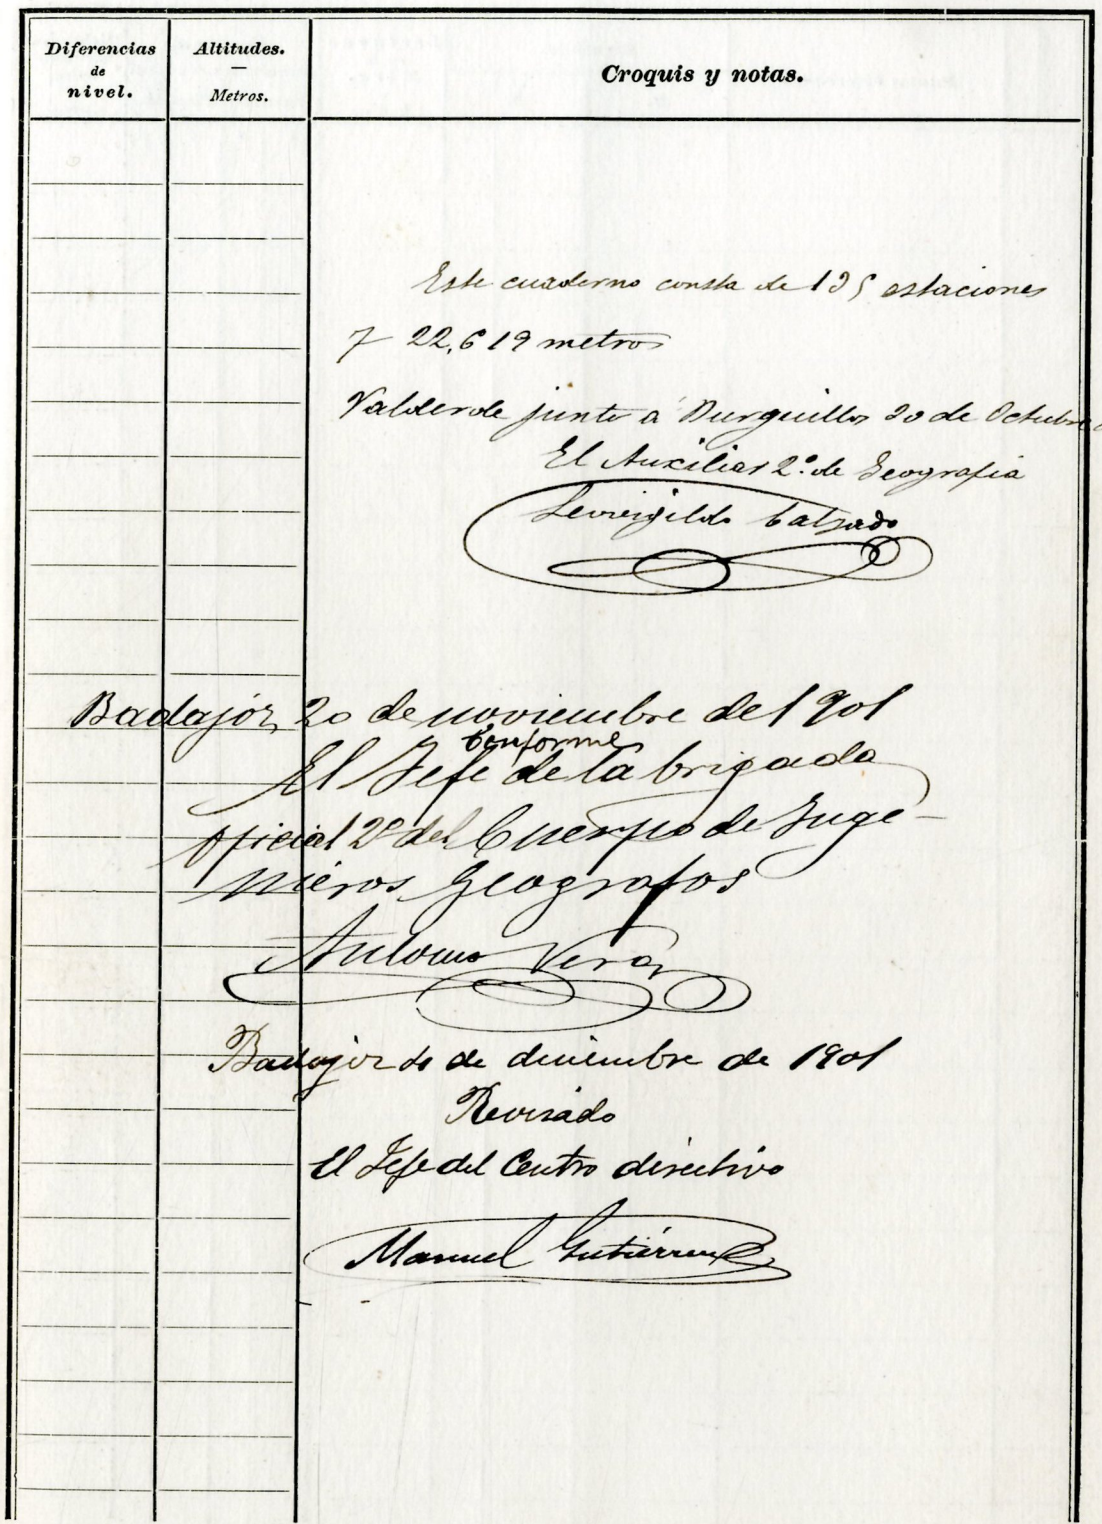 Diferencias
de
nivel.
Altitudes.
Metros.
Croquis y notas.
Este cuaderno consta de 195 estaciones
y 22,619 metros
Valverde junto á Burguillos 20 de Octubre
El Auxiliar 2º. de Geografia
Leovigildo Calzado
Badajóz, 20 de noviembre de 1901
Conforme
El Jefe de la brigada
Oficial 2º del Cuerpo de Inge-
nieros Geografos
Antonio Vera
Badajoz 4 de diciembre de 1901
Revisado
El Jefe del Centro directivo
Manuel Gutiérrez